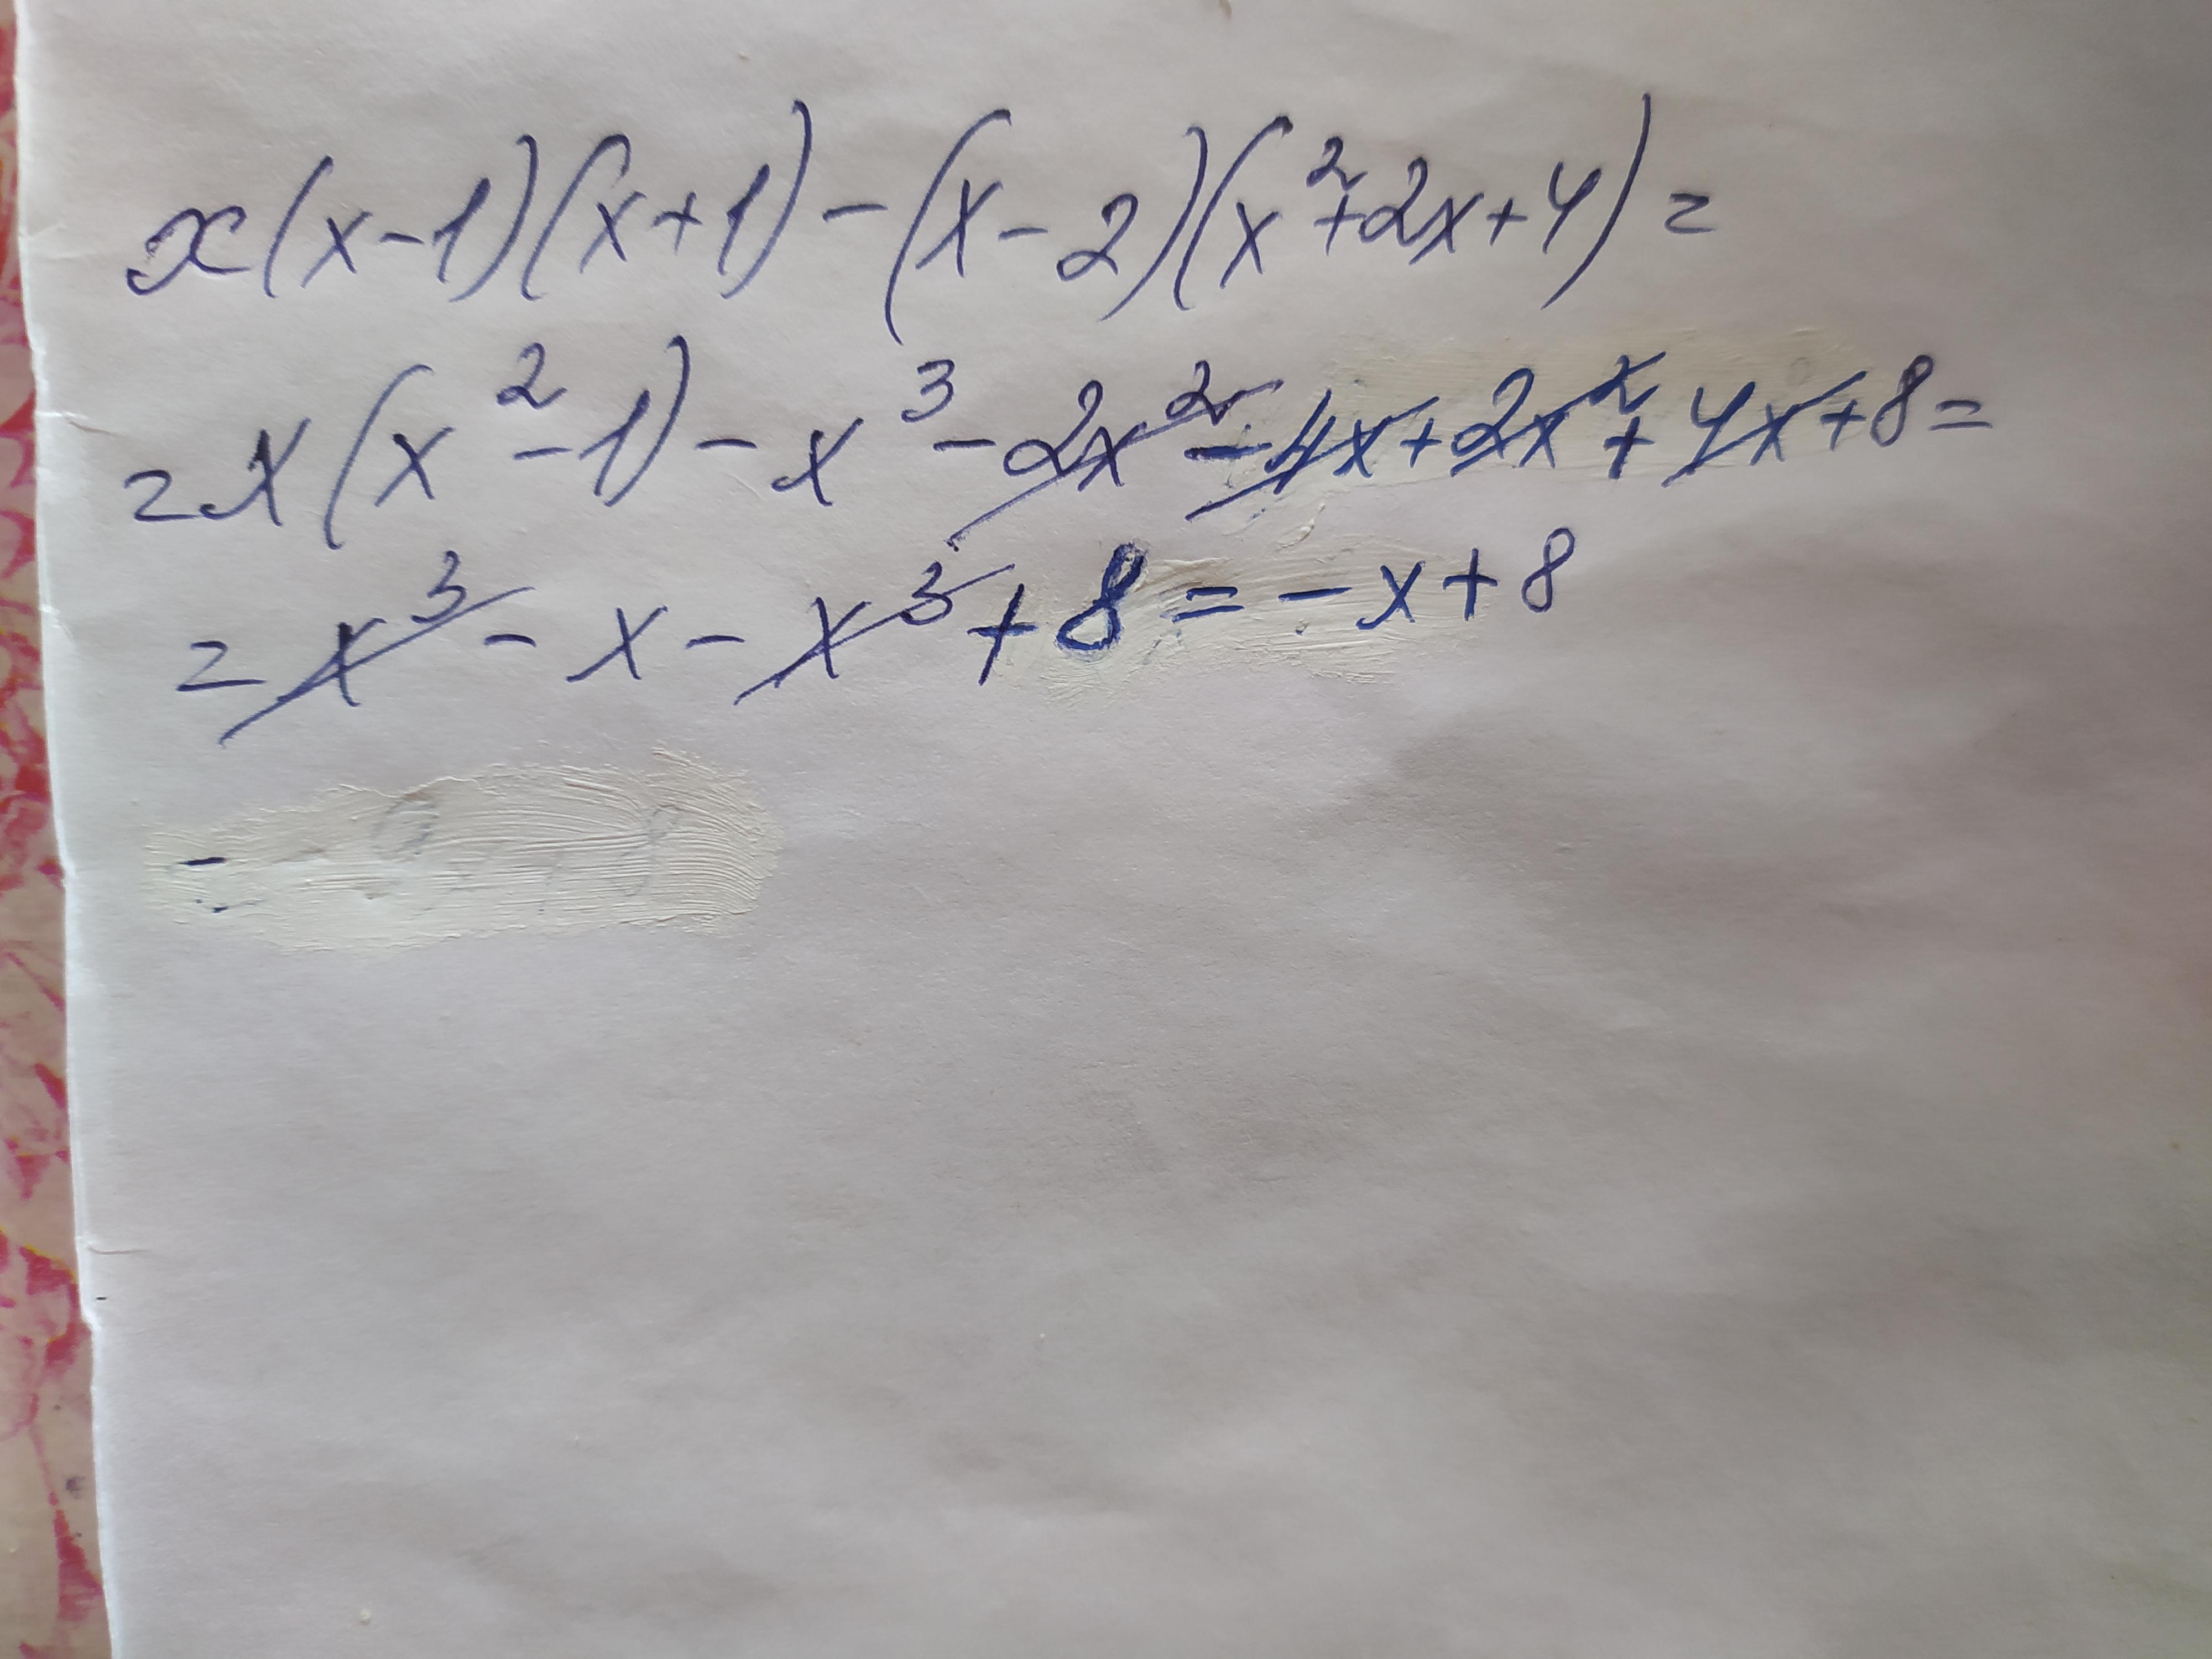 x(x-1)(x+1)-(x-2)(x²+2x+4)=
=x(x²-1)-x³-2x²-4x+2x²+4x+8=
=x³-x-x³+8=-x+8